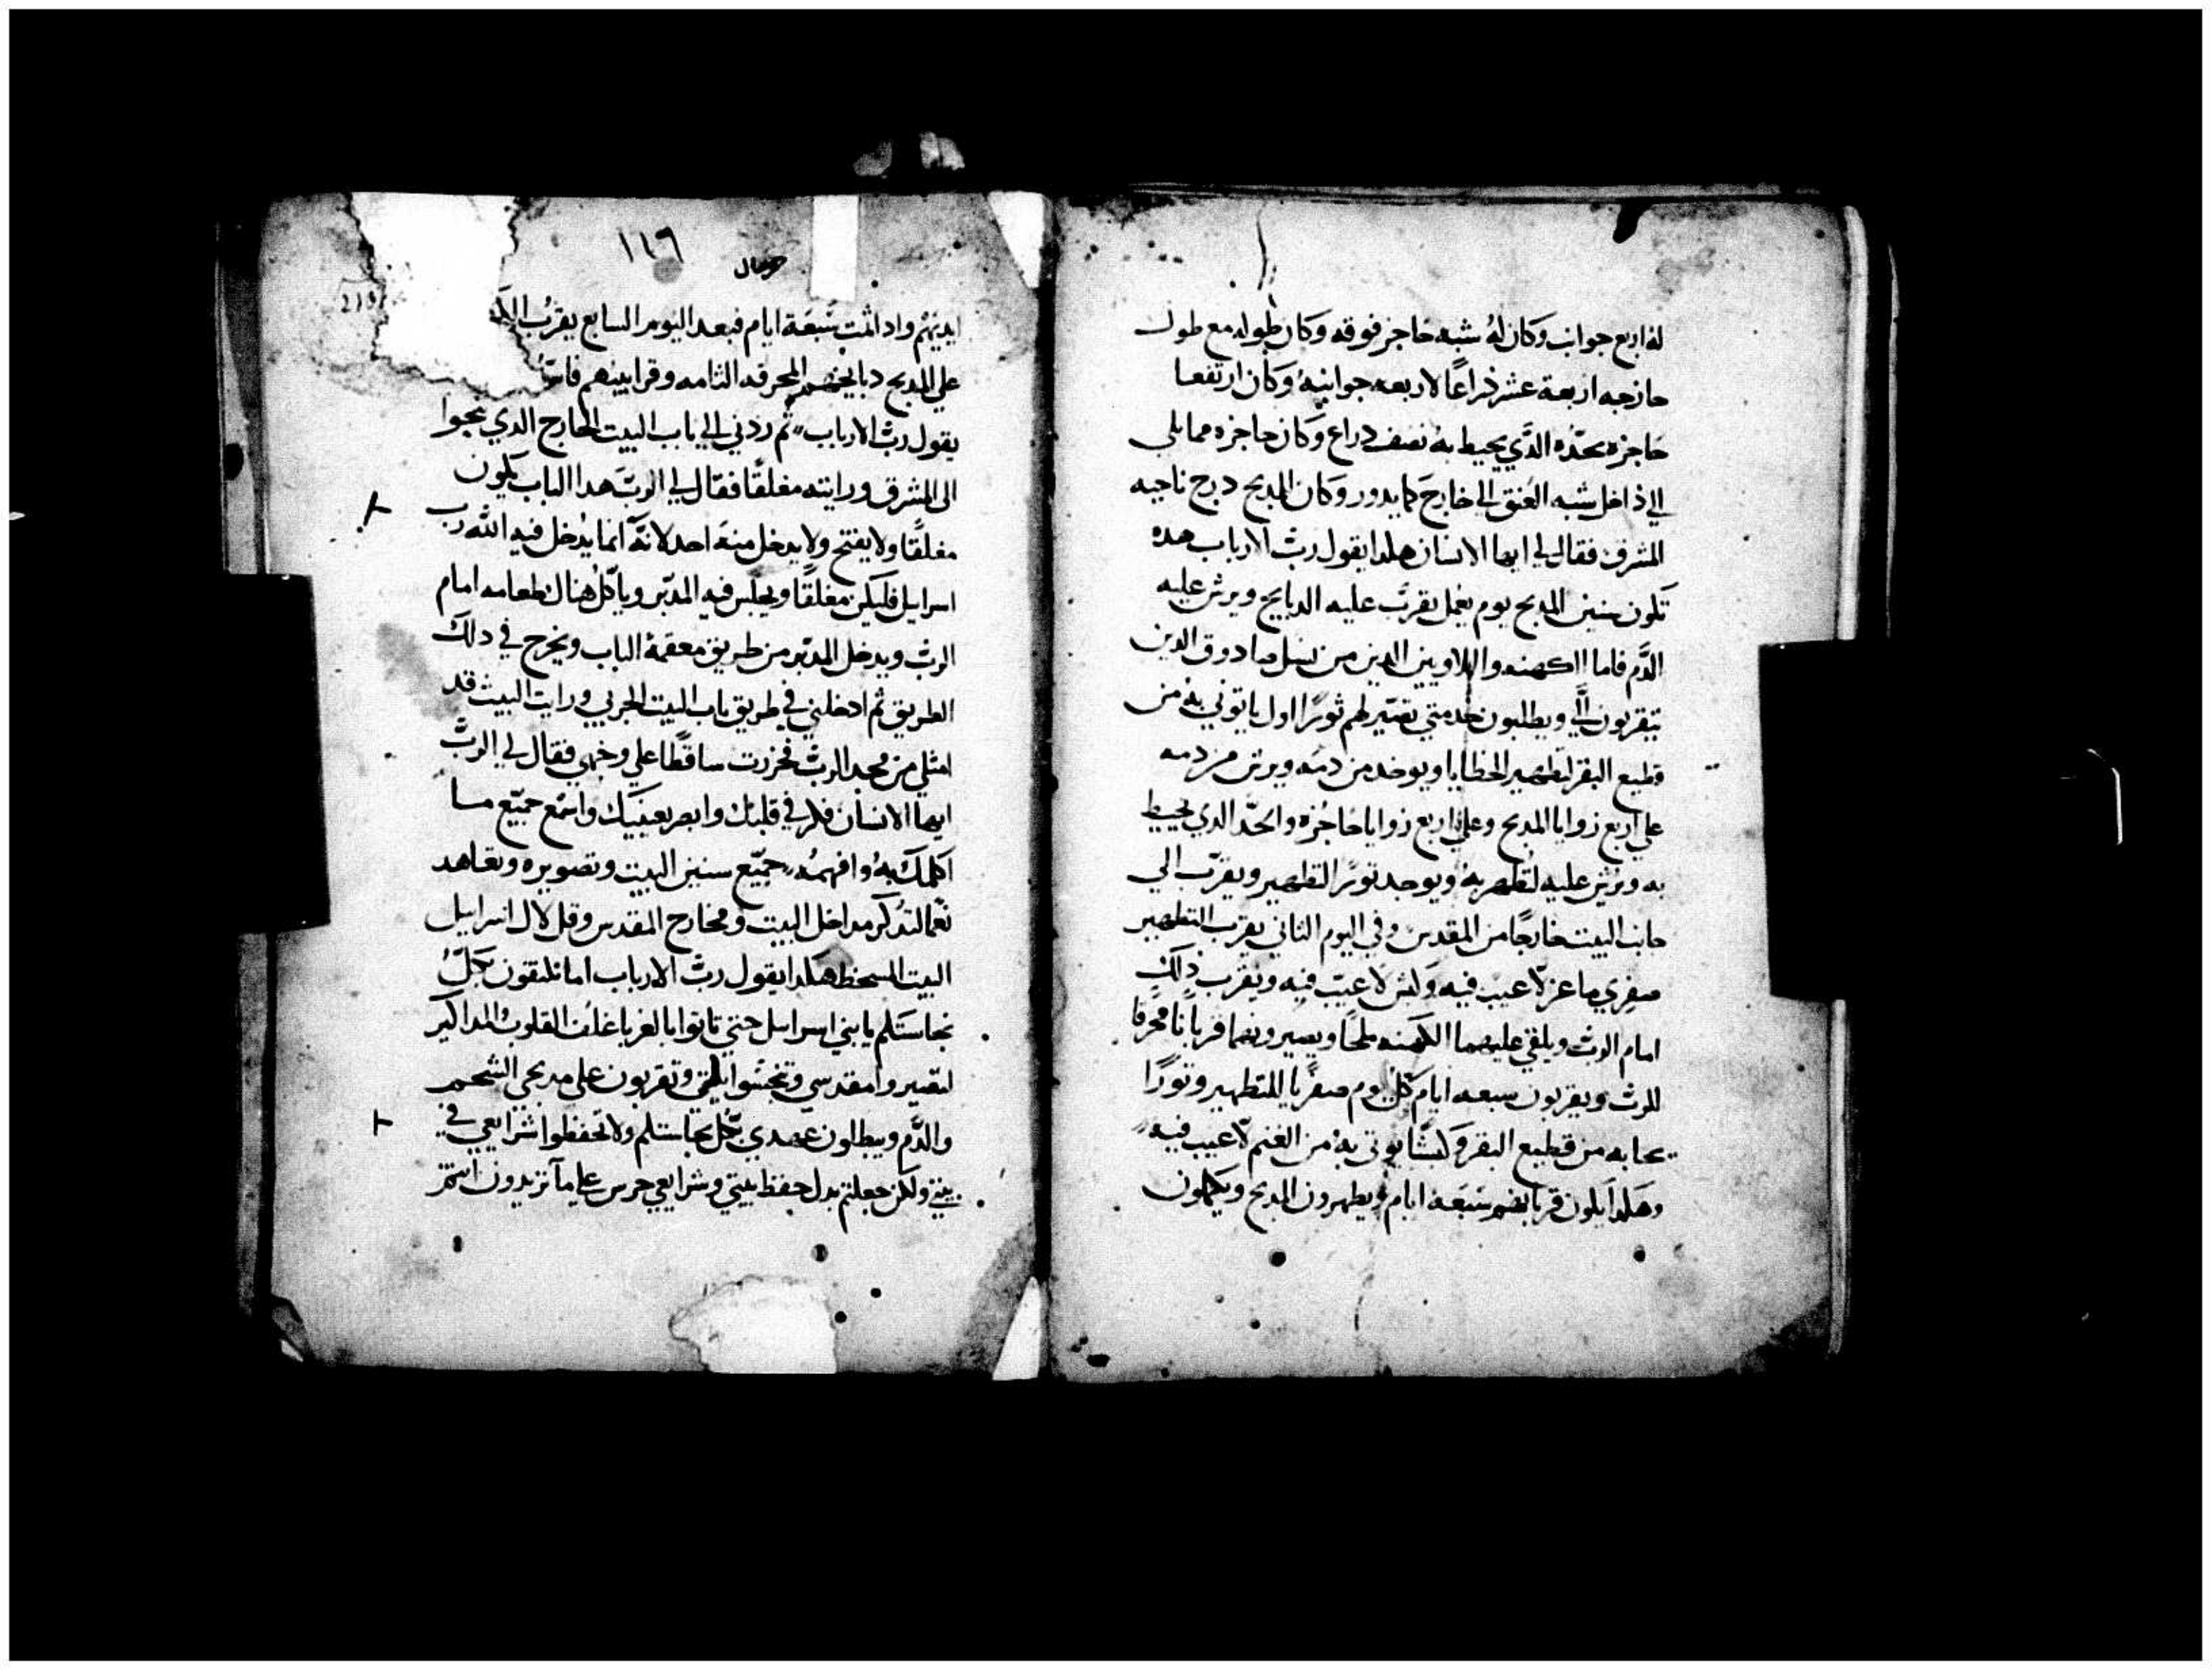 له اربع جوانب وكان له شبه حاجز فوقه وكان طوله مع طول
خارجه اربعة عشر ذراعًا لاربعه جوانبه وكان ارتفعا
حاجزه بحدّه الدَّي يحيط به نصف دراع وكان حاجزه ممايلي
الي داخل شبه العنق الي خارج كمايدور وكان المدبح درج ناحيه
المشرق فقال لي ايها الانسان هكدا يقول ربّ الارباب هده
تكون سنين المدبح يوم يعمل يقرّب عليه الدبايح ويرش عليه
الدَّم فاما الكهنه واللاويين الدين من نسل صادوق الدين
يتقربون اليَّ ويطلبون خدمتي تصيّر لهم ثورًا اول ياتوني به من
قطيع البقر لتطهير الخطايا ويوخد من دمه ويرش من دمه
علي اربع زوايا المدبح وعلي اربع زوايا حاجزه والحدّ الدي يحيط
به ويرش عليه لتطهر به ويوجد ثورًا التطهير ويقرّب الي
جانب البيت خارجًا من المقدس وفي اليوم التاني يقرب التطهير
صفري ماعز لا عيب فيه وكبش لا عيب فيه ويقرب ذلك
امام الربّ ويلقي عليهما الكهنه ملحًا ويصيرونهما قربانًا محرقا
للربّ ويقربون سبعه ايام كل يوم صفريًا للتطهير وتورًا
يجابه من قطيع البقر وكبشًا يوتى به من الغنم لا عيب فيه
وهكدا يكون قربانهم سَبعَه ايام ويطهرون المدبح ويكملون
١١٦
حزقيال
219
ايديهم وادا تمّت سَبعَة ايام فبعد اليوم السابع يقرّب
علي المدبح دبايحهم المحرقه التامه وقرابينهم
يقول ربّ الارباب ثم ردني الي باب البيت الخارج الدي نحوا
الى المشرق ورايته مغلقًا فقال لي الربّ هدا الباب يكون
مغلقًا ولا يفتح ولا يدخل منه احد لانّه انما يدخل فيه الله رب
اسرايل فليكن مغلقًا ويجلس فيه المدبّر وياكل هناك طعامه امام
الربّ ويدخل المدبّر من طريق معقمة الباب ويخرج في دلك
الطريق ثم ادخلني في طريق باب البيت الجربي ورايت البيت قد
امتلي من مجد الربّ فخررت ساقطًا علي وجهي فقال لي الربّ
ايها الانسان فكر في قلبك وابصر بعينيك واسمع جميع مـا
اكلمك به وافهمه جميع سنين البيت وتصويره وتعاهد
مداخل البيت ومخارج المقدس وقل لال اسراييل
البيت المسخط هكدا يقول ربّ الارباب اما تلتقون بكلّ
نجاستكم يا بني اسرايل حتي تاتوا بالغربا غلف القلوب المداكير
لتصيروا مقدسي وتنجسّوا بيتي وتقربون على مدبحي الشحم
والدَّم ويبطلون عهدي بكل نجاستكم ولا تحفظوا شرايعي في
بيتي ولكن جعلتم بدل حفظ بيتي وشرايعي حرس علي ما تريدون انتم